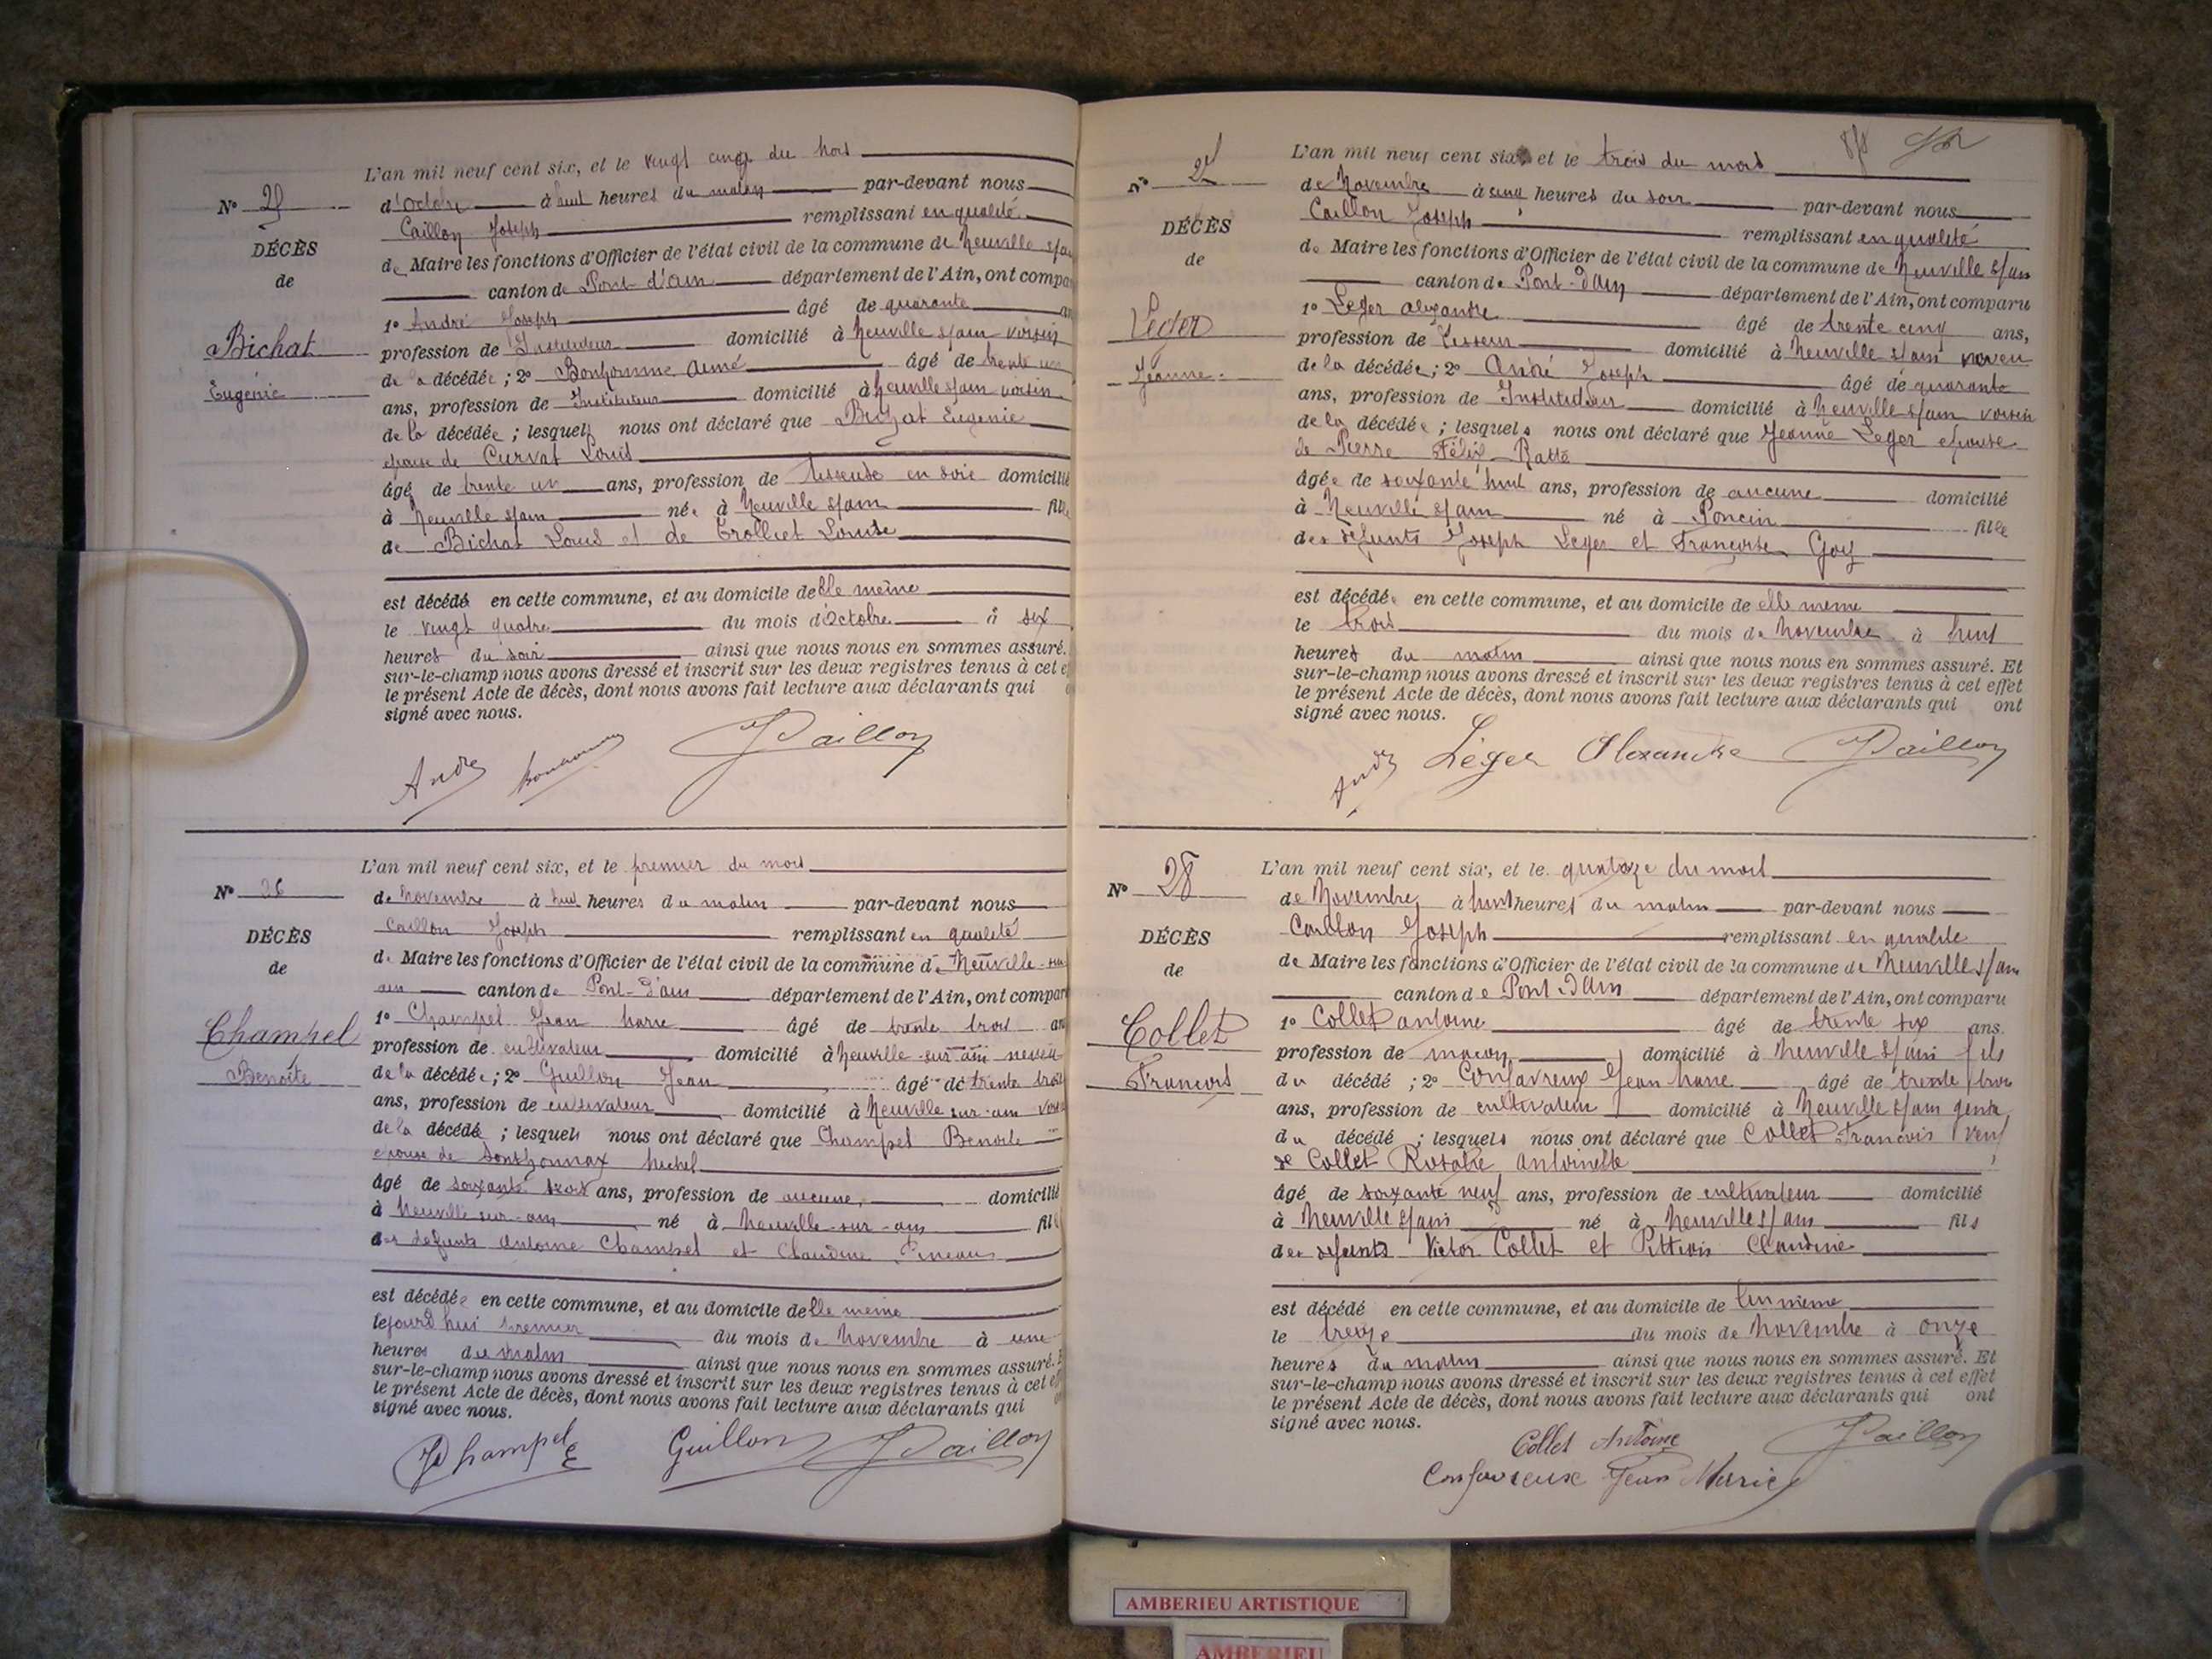 L'an mil neuf cent six, et le vingt cinq du mois
N° 25
d'Octobre à huit heures du matin par-devant nous
Caillon Joseph remplissant en qualité
DÉCÈS
de Maire les fonctions d'Officier de l'état civil de la commune de Neuville s/ain
de
canton de Pont d'ain département de l'Ain, ont compa
1° André Joseph âgé de quarante an
Bichat
profession de Instituteur domicilié à Neuville s/ain voisin
de la décédée ; 2° Bonhomme Aimé âgé de trente un
Eugénie
ans, profession de Instituteur domicilié à Neuville s/ain voisin
de la décédée ; lesquels nous ont déclaré que Bichat Eugenie
épouse de Curvat Louis
âgé de trente un ans, profession de tisseuse en soie domicilié
à Neuville s/ain née à Neuville s/ain fille
de Bichat Louis et de Trolliet Louise
est décédé en cette commune, et au domicile de elle même
le vingt quatre du mois d'Octobre à six
heures du soir ainsi que nous nous en sommes assuré.
sur-le-champ nous avons dressé et inscrit sur les deux registres tenus à cet e
le présent Acte de décès, dont nous avons fait lecture aux déclarants qui
signé avec nous.
André Bonhomme JCaillon
L'an mil neuf cent six, et le premier du mois
N° 26
de Novembre à huit heures du matin par-devant nous
Caillon Joseph remplissant en qualité
DÉCÈS
de Maire les fonctions d'Officier de l'état civil de la commune de Neuville-sur
de
ain canton de Pont-d'ain département de l'Ain, ont compar
1° Champel Jean Marie âgé de trente trois an
Champel
profession de cultivateur domicilié à Neuville-sur-ain neveu
Benoîte
de la décédée ; 2° Guillon Jean âgé de trente trois
ans, profession de cultivateur domicilié à Neuville sur-ain voisin
de la décédée ; lesquels nous ont déclaré que Champel Benoite
épouse de Sonthonnax Michel
âgé de soixante trois ans, profession de aucune domicilié
à Neuville-sur-ain né à Neuville-sur-ain fil
des défunts Antoine Champel et Claudine
est décédée en cette commune, et au domicile de elle même
le jourd'hui premier du mois de Novembre à une
heures du matin ainsi que nous nous en sommes assuré. E
sur-le-champ nous avons dressé et inscrit sur les deux registres tenus à cet eff
le présent Acte de décès, dont nous avons fait lecture aux déclarants qui
signé avec nous.
JChampel Guillon JCaillon
L'an mil neuf cent six et le trois du mois
N° 27
de Novembre à cinq heures du soir par-devant nous
Caillon Joseph remplissant en qualité
DÉCÈS
de Maire les fonctions d'Officier de l'état civil de la commune de Neuville s/ain
de
canton de Pont-d'Ain département de l'Ain, ont comparu
1° Leger alexandre âgé de trente cinq ans,
Leger
profession de Tisseur domicilié à Neuville s/ain neveu
Jeanne
de la décédée ; 2° André Joseph âgé de quarante
ans, profession de Instituteur domicilié à Neuville s/ain voisin
de la décédée ; lesquels nous ont déclaré que Jeanne Leger épouse
de Pierre Félix Ratté
âgée de soixante huit ans, profession de aucune domicilié
à Neuville s/ain né à Poncin fille
des défunts Joseph Leger et Françoise Goy
est décédée en cette commune, et au domicile de elle meme
le trois du mois de Novembre à huit
heures du matin ainsi que nous nous en sommes assuré. Et
sur-le-champ nous avons dressé et inscrit sur les deux registres tenus à cet effet
le présent Acte de décès, dont nous avons fait lecture aux déclarants qui ont
signé avec nous.
André Léger Alexandre JCaillon
L'an mil neuf cent six, et le quatorze du mois
N° 28
de Novembre à huit heures du matin par-devant nous
Caillon Joseph remplissant en qualité
DÉCÈS
de Maire les fonctions d'Officier de l'état civil de la commune de Neuville s/ain
de
canton de Pont-d'Ain département de l'Ain, ont comparu
1° Collet antoine âgé de trente six ans.
Collet
profession de maçon domicilié à Neuville s/ain fils
François
du décédé ; 2° Confavreux Jean Marie âgé de trente trois
ans, profession de cultivateur domicilié à Neuville s/ain gendre
du décédé ; lesquels nous ont déclaré que Collet François veuf
de Collet Rosalie antoinette
âgé de soixante neuf ans, profession de cultivateur domicilié
à Neuville s/ain né à Neuville s/ain fils
des défunts Victor Collet et Claudine
est décédé en cette commune, et au domicile de lui même
le treize du mois de Novembre à onze
heures du matin ainsi que nous nous en sommes assuré. Et
sur-le-champ nous avons dressé et inscrit sur les deux registres tenus à cet effet
le présent Acte de décès, dont nous avons fait lecture aux déclarants qui ont
signé avec nous.
Collet Antoine JCaillon
Confavreux Jean Marie
AMBERIEU ARTISTIQUE
AMBERIEU